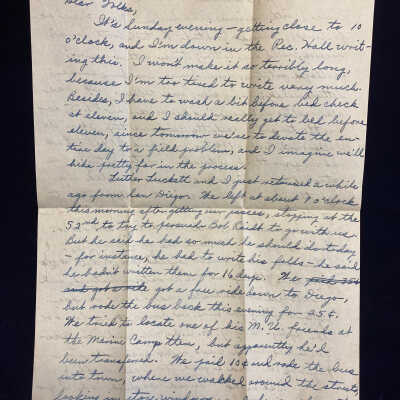 Dear Folks,
It's Sunday evening – getting close to 10
o'clock, and I'm down in the Rec. Hall writ-
ing this. I won't make it so terribly long,
because I'm too tired to write very much.
Besides, I have to wash a bit before bed check
at eleven, and I should really get to bed before
eleven, since tomorrow we're to devote the en-
tire day to a field problem, and I imagine we'll
hike pretty far in the process.
Luther Luckett and I just returned a while
ago from San Diego. We left at about 9 o'clock
this morning after getting our passes, stopping at the
52nd to try to persuade Bob to go with us.
But he said he had so much he should do today
– for instance, he had to write his folks – he said
he hadn't written them for 16 days. We paid 35¢
and got a ride got a free ride down to Diego,
but rode the bus back this evening for 25¢.
We tried to locate one of his M.U. friends at
the Marine Camp then, but apparently he'd
been transferred. We paid 10¢ and rode the bus
into town, where we walked around the streets,
looking in store windows